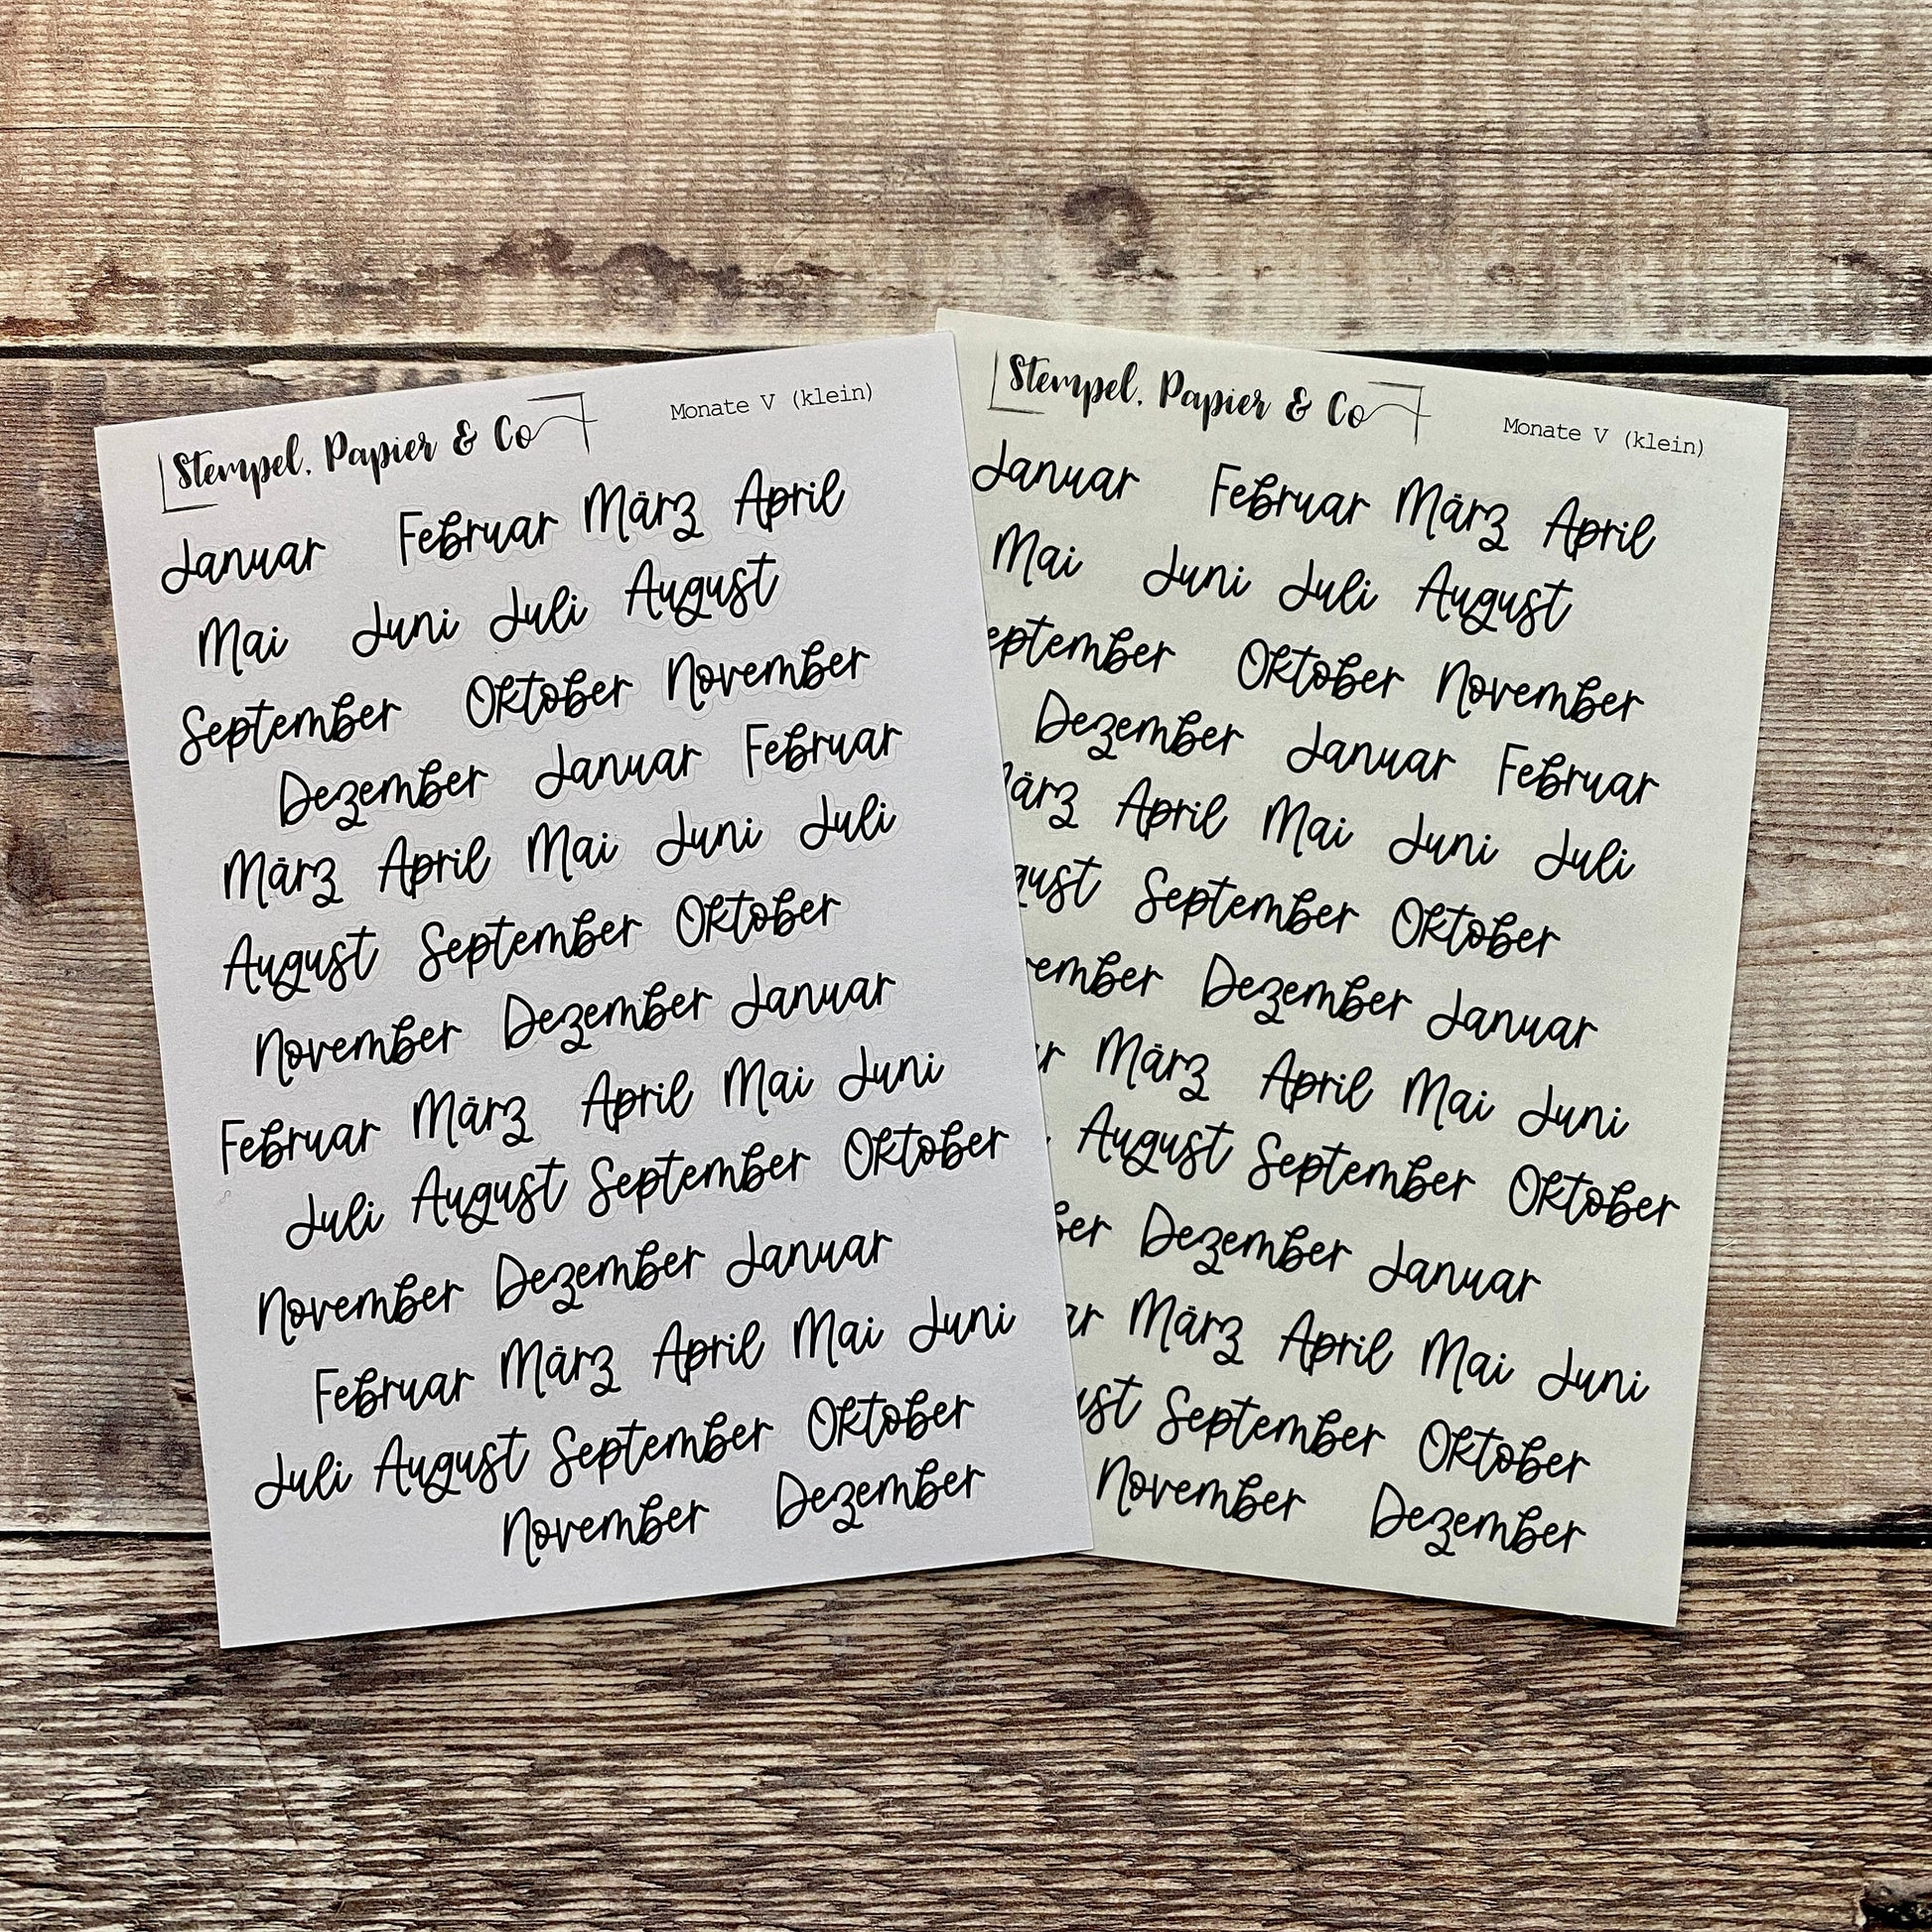 Stempel, Papier & Co
Monate V (klein)
Januar Februar März April
Mai Juni Juli August
September Oktober November
Dezember Januar Februar
März April Mai Juni Juli
August September Oktober
November Dezember Januar
Februar März April Mai Juni
Juli August September Oktober
November Dezember Januar
Februar März April Mai Juni
Juli August September Oktober
November Dezember
Stempel, Papier & Co
Monate V (klein)
Januar Februar März April
Mai Juni Juli August
eptember Oktober November
Dezember Januar Februar
ärz April Mai Juni Juli
gust September Oktober
ember Dezember Januar
r März April Mai Juni
August September Oktober
ber Dezember Januar
ar März April Mai Juni
ust September Oktober
November Dezember